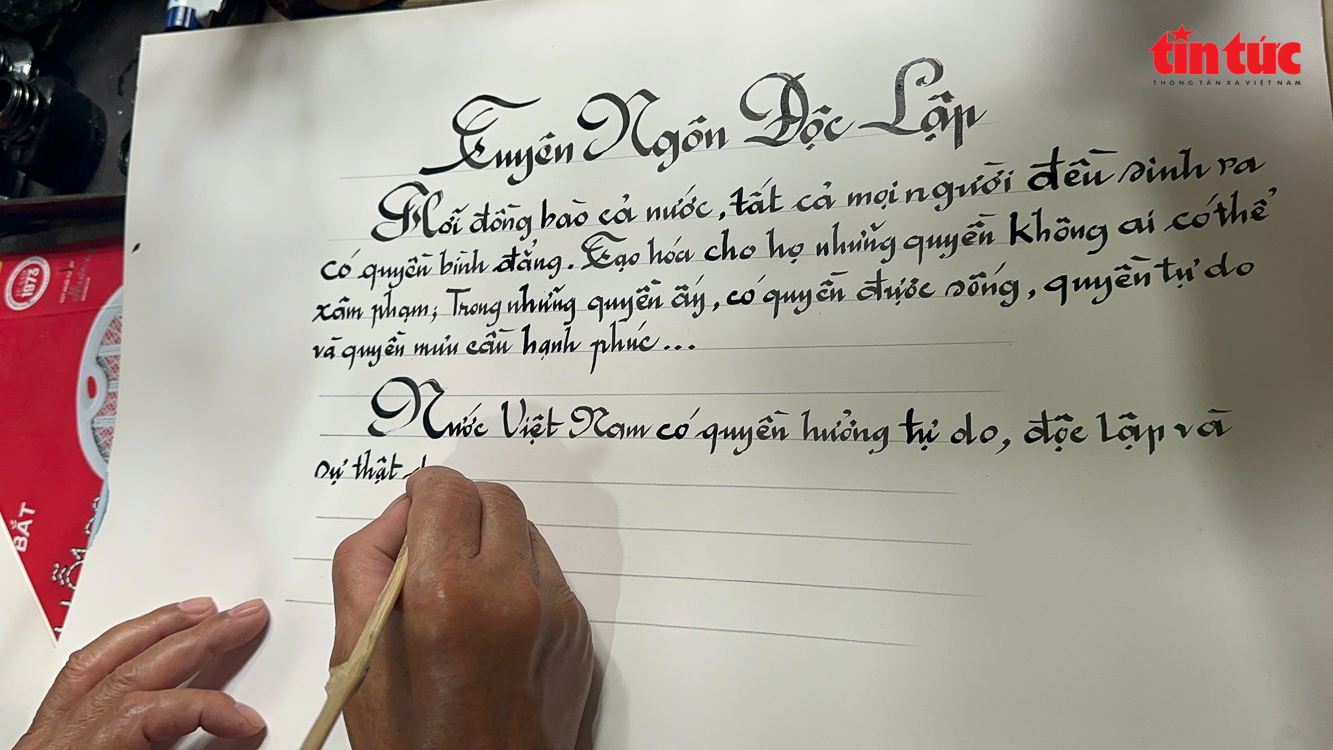 tin tức
THÔNG TẤN XÃ VIỆT NAM
Tuyên Ngôn Độc Lập
Hỡi đồng bào cả nước, tất cả mọi người đều sinh ra
có quyền bình đẳng. Tạo hóa cho họ những quyền không ai có thể
xâm phạm; Trong những quyền ấy, có quyền được sống, quyền tự do
và quyền mưu cầu hạnh phúc...
Nước Việt Nam có quyền hưởng tự do, độc lập và
sự thật
1973
BẮT